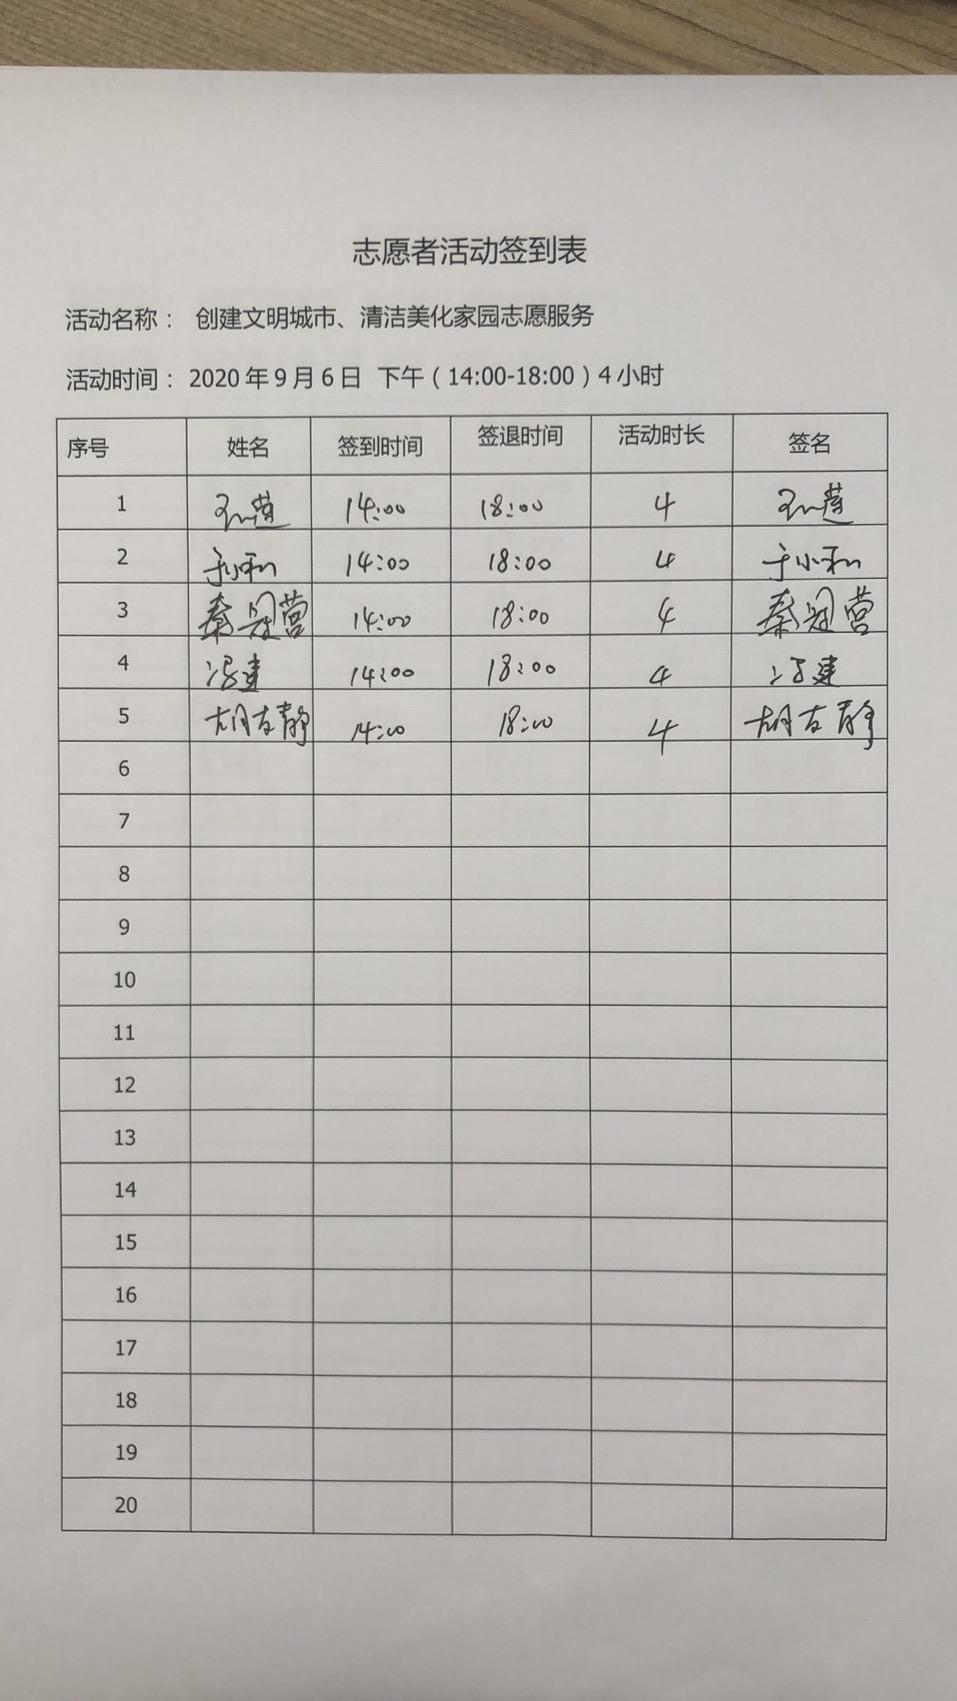 志愿者活动签到表
活动名称： 创建文明城市、清洁美化家园志愿服务
活动时间：2020年9月6日 下午（14:00-18:00）4小时
序号 姓名 签到时间 签退时间 活动时长 签名
1 孙莲 14:00 18:00 4 孙莲
2 于小和 14:00 18:00 4 于小和
3 秦冠营 14:00 18:00 4 秦冠营
4 冯建 14:00 18:00 4 冯建
5 胡友静 14:00 18:00 4 胡友静
6
7
8
9
10
11
12
13
14
15
16
17
18
19
20